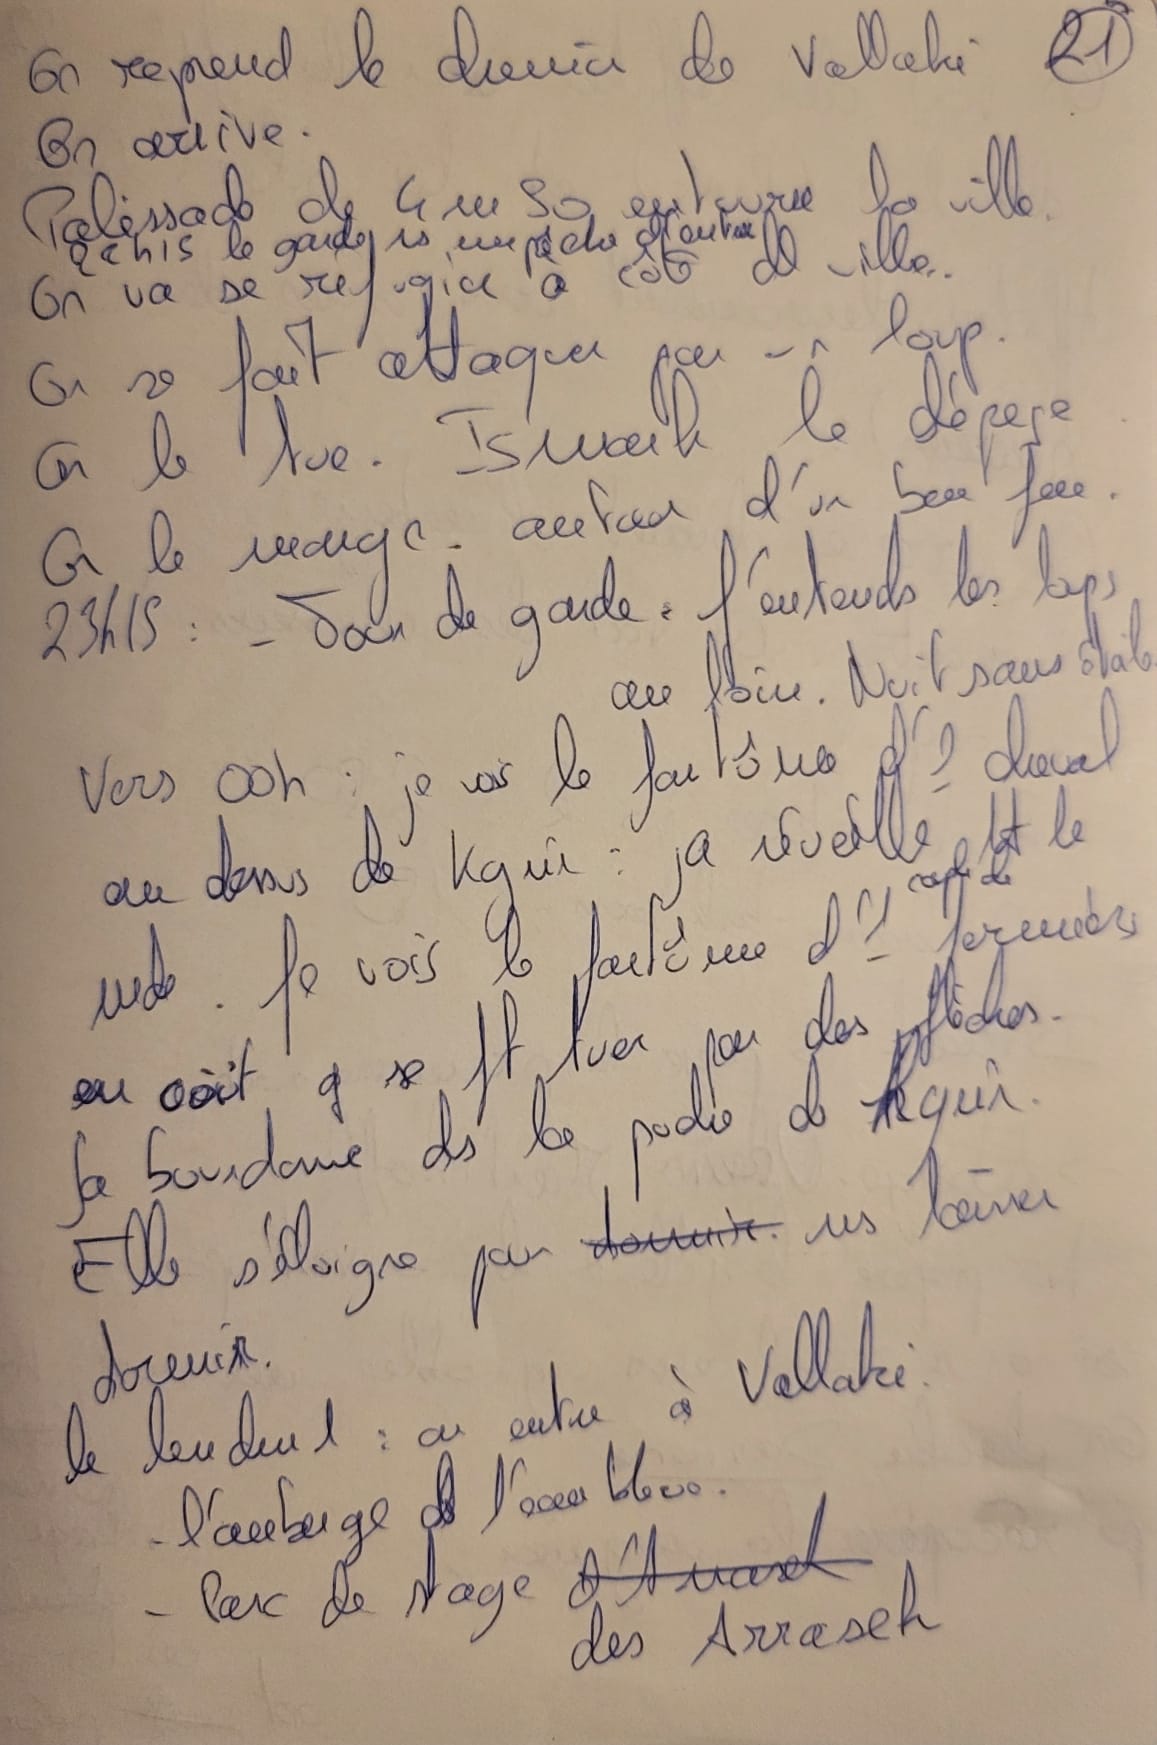 On reprend le chemin de Vallaki 21
On arrive.
Palissade de 4m50 entoure la ville.
le garde ns empêche d'entrer
On va se réfugier à côté de ville.
On se fait attaquer par un loup.
On le tue. Ismark le dépece
On le mange. autour d'un bon feu.
23h15 : - Tour de garde : j'entends les loups
au loin. Nuit sans étoile
Vers 00h : je vois le fantôme d'1 cheval
au dessus de Kguir : ça réveille tt le
mde. Je vois le fantôme d'1 couple de fermiers
en oòit q se ft tuer par des flèches.
Ça bourdonne ds la poche de Kguir.
Elle s'éloigne pour dormir. ns laisser
dormir.
le lendem1 : on entre à Vallaki.
- l'auberge de l'eau bleue.
- Parc de stage
des Arrasek